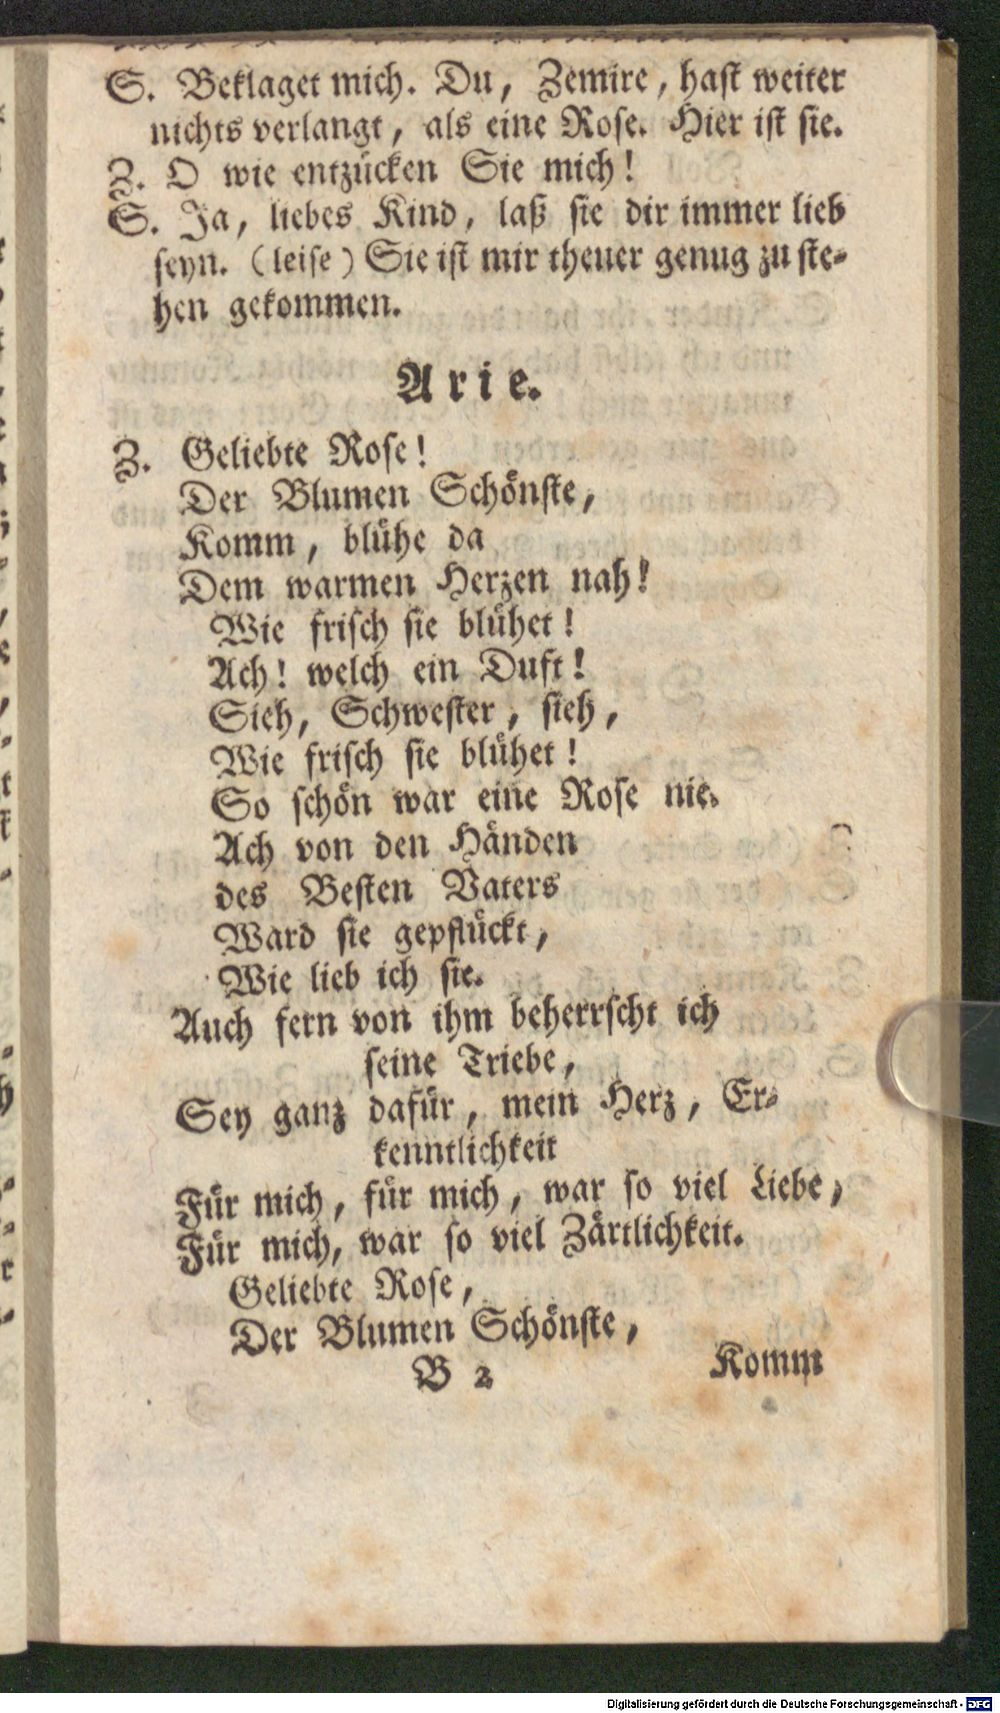 S. Beklaget mich. Du, Zemire, hast weiter
nichts verlangt, als eine Rose. Hier ist sie.
Z. O wie entzücken Sie mich!
S. Ja, liebes Kind, laß sie dir immer lieb
seyn. (leise) Sie ist mir theuer genug zu ste-
hen gekommen.
Arie.
Z. Geliebte Rose!
Der Blumen Schönste,
Komm, blühe da
Dem warmen Herzen nah!
Wie frisch sie blühet!
Ach! welch ein Duft!
Sieh, Schwester, sieh,
Wie frisch sie blühet!
So schön war eine Rose nie.
Ach von den Händen
des Besten Vaters
Ward sie gepflückt,
Wie lieb ich sie.
Auch fern von ihm beherrscht ich
seine Triebe,
Sey ganz dafür, mein Herz, Er-
kenntlichkeit
Für mich, für mich, war so viel Liebe,
Für mich, war so viel Zärtlichkeit.
Geliebte Rose,
Der Blumen Schönste,
B 2 Komm
Digitalisierung gefördert durch die Deutsche Forschungsgemeinschaft - DFG